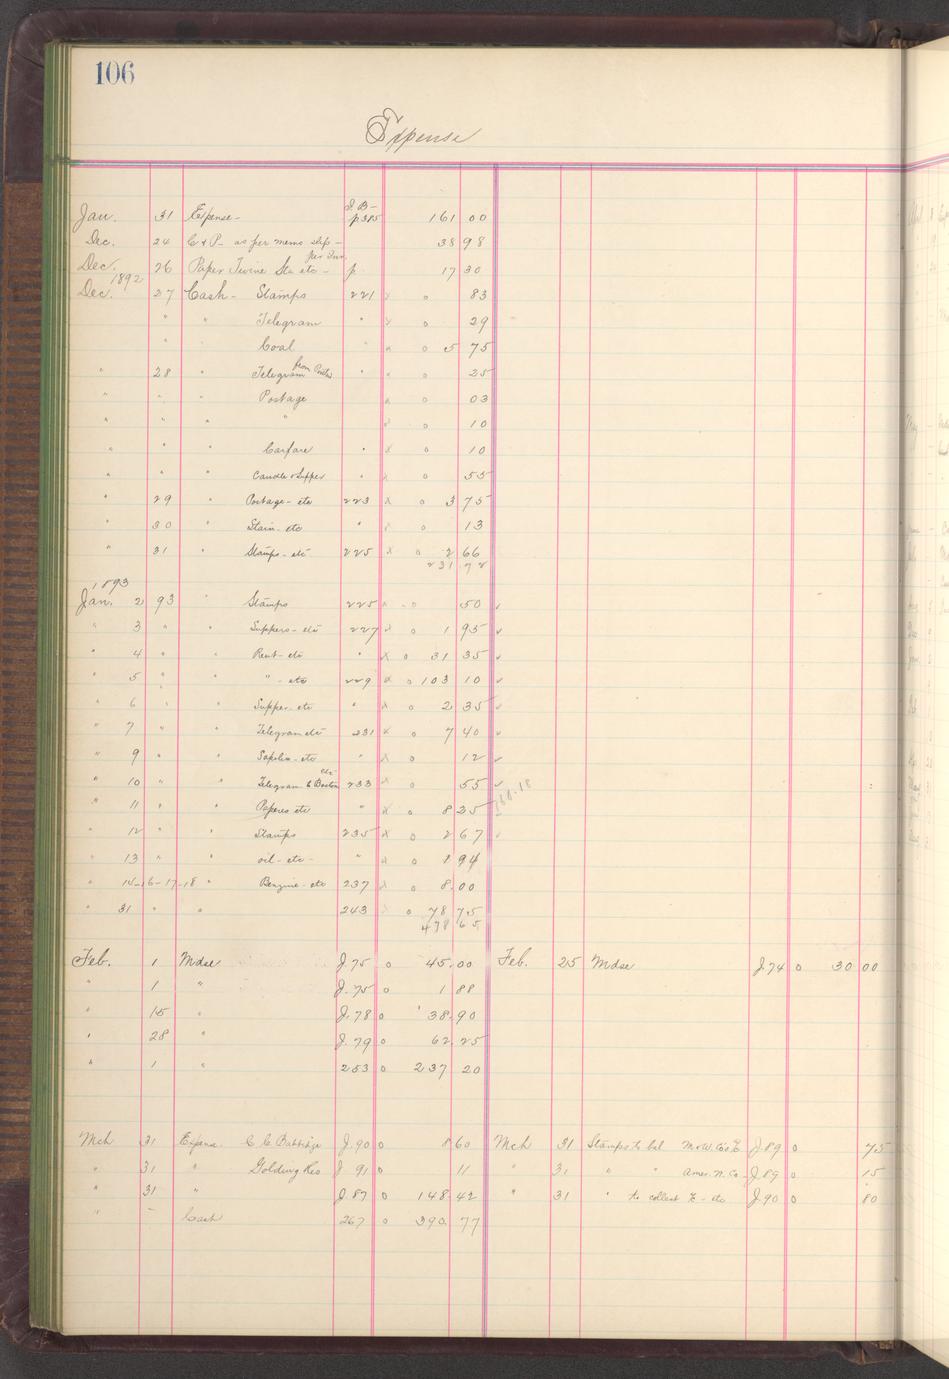 106
Expense
Jan. 31 Expense - p 385 161 00
Dec. 24 C & P - as per memo slip - 38 98
Dec. 26 Paper Twine Sta etc - p. 17 30
1892
Dec. 27 Cash - Stamps 221 x o 83
" " Telegram " x o 29
" Coal " x o 5 75
" 28 " Telegram from " x o 25
" " " Postage x o 03
" " " " x o 10
" " " Carfare " x o 10
" " " Candles & Supper " x o 55
" 29 " Postage - etc 223 x o 3 75
" 30 " Stain - etc " x o 13
" 31 " Stamps - etc 225 x o 2 66
231 72
1893
Jan. 2 93 " Stamps 225 x o 50 ✓
" 3 " Suppers - etc 227 x o 1 95 ✓
" 4 " " Rent - etc " x o 31 35 ✓
" 5 " " " - etc 229 x o 103 10 ✓
" 6 " " Supper - etc " x o 2 35 ✓
" 7 " " Telegram etc 231 x o 7 40 ✓
" 9 " " Sapolio - etc " x o 12 ✓
" 10 " " Telegram to Boston etc 233 x o 55 ✓
" 11 " " Papers etc " x o 8 25
" 12 " " Stamps 235 x o 2 67 ✓
" 13 " " oil - etc - " x o 1 94
" 14-16-17-18 " Benzine - etc 237 x o 8.00
" 31 " " 243 x o 78 75
478 65
Feb. 1 Mdse J. 75 o 45.00 Feb. 25 Mdse J. 74 o 30 00
" 1 " J. 75 o 1 88
" 15 " J. 78 o 38.90
" 28 " J. 79 o 62.25
" 1 " 253 o 237 20
Mch 31 Expense. C C J. 90 o 8 60 Mch 31 Stamps to bal J. 89 o 75
" 31 " Golding & Co J 91 o 11 " 31 " " Amer. N. Co. J. 89 o 15
" 31 " J. 87 o 148.42 " 31 " to collect % - etc J. 90 o 80
" - Cash 267 o 390. 77